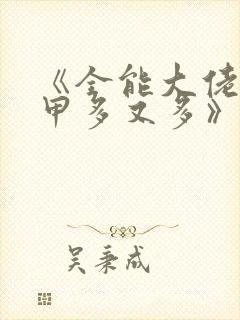 《全能大佬
甲多又多》
吴秉成